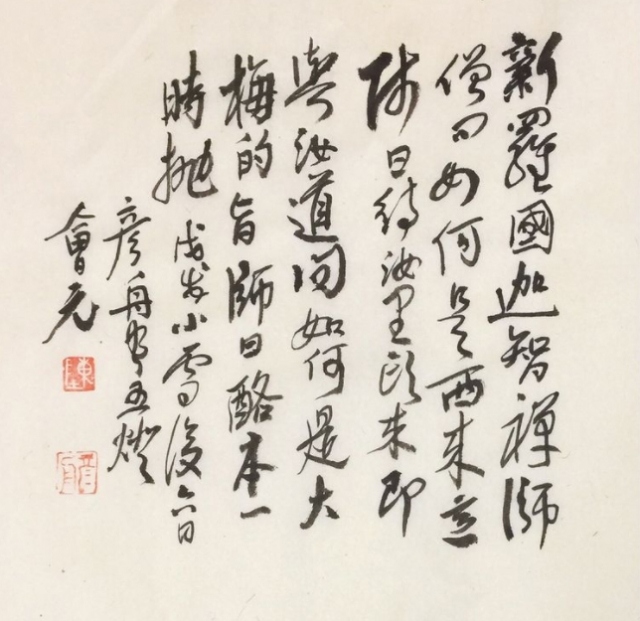 新羅國迦智禪師
僧問如何是西來意
師曰待汝里頭來即
與汝道問如何是大
梅的旨師曰酪本一
時抛 戊戌小雪後六日
彥舟書五燈
會元